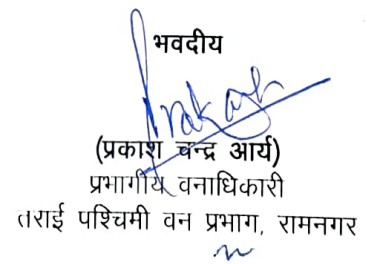 भवदीय
Prakash
(प्रकाश चन्द्र आर्य)
प्रभागीय वनाधिकारी
तराई पश्चिमी वन प्रभाग, रामनगर